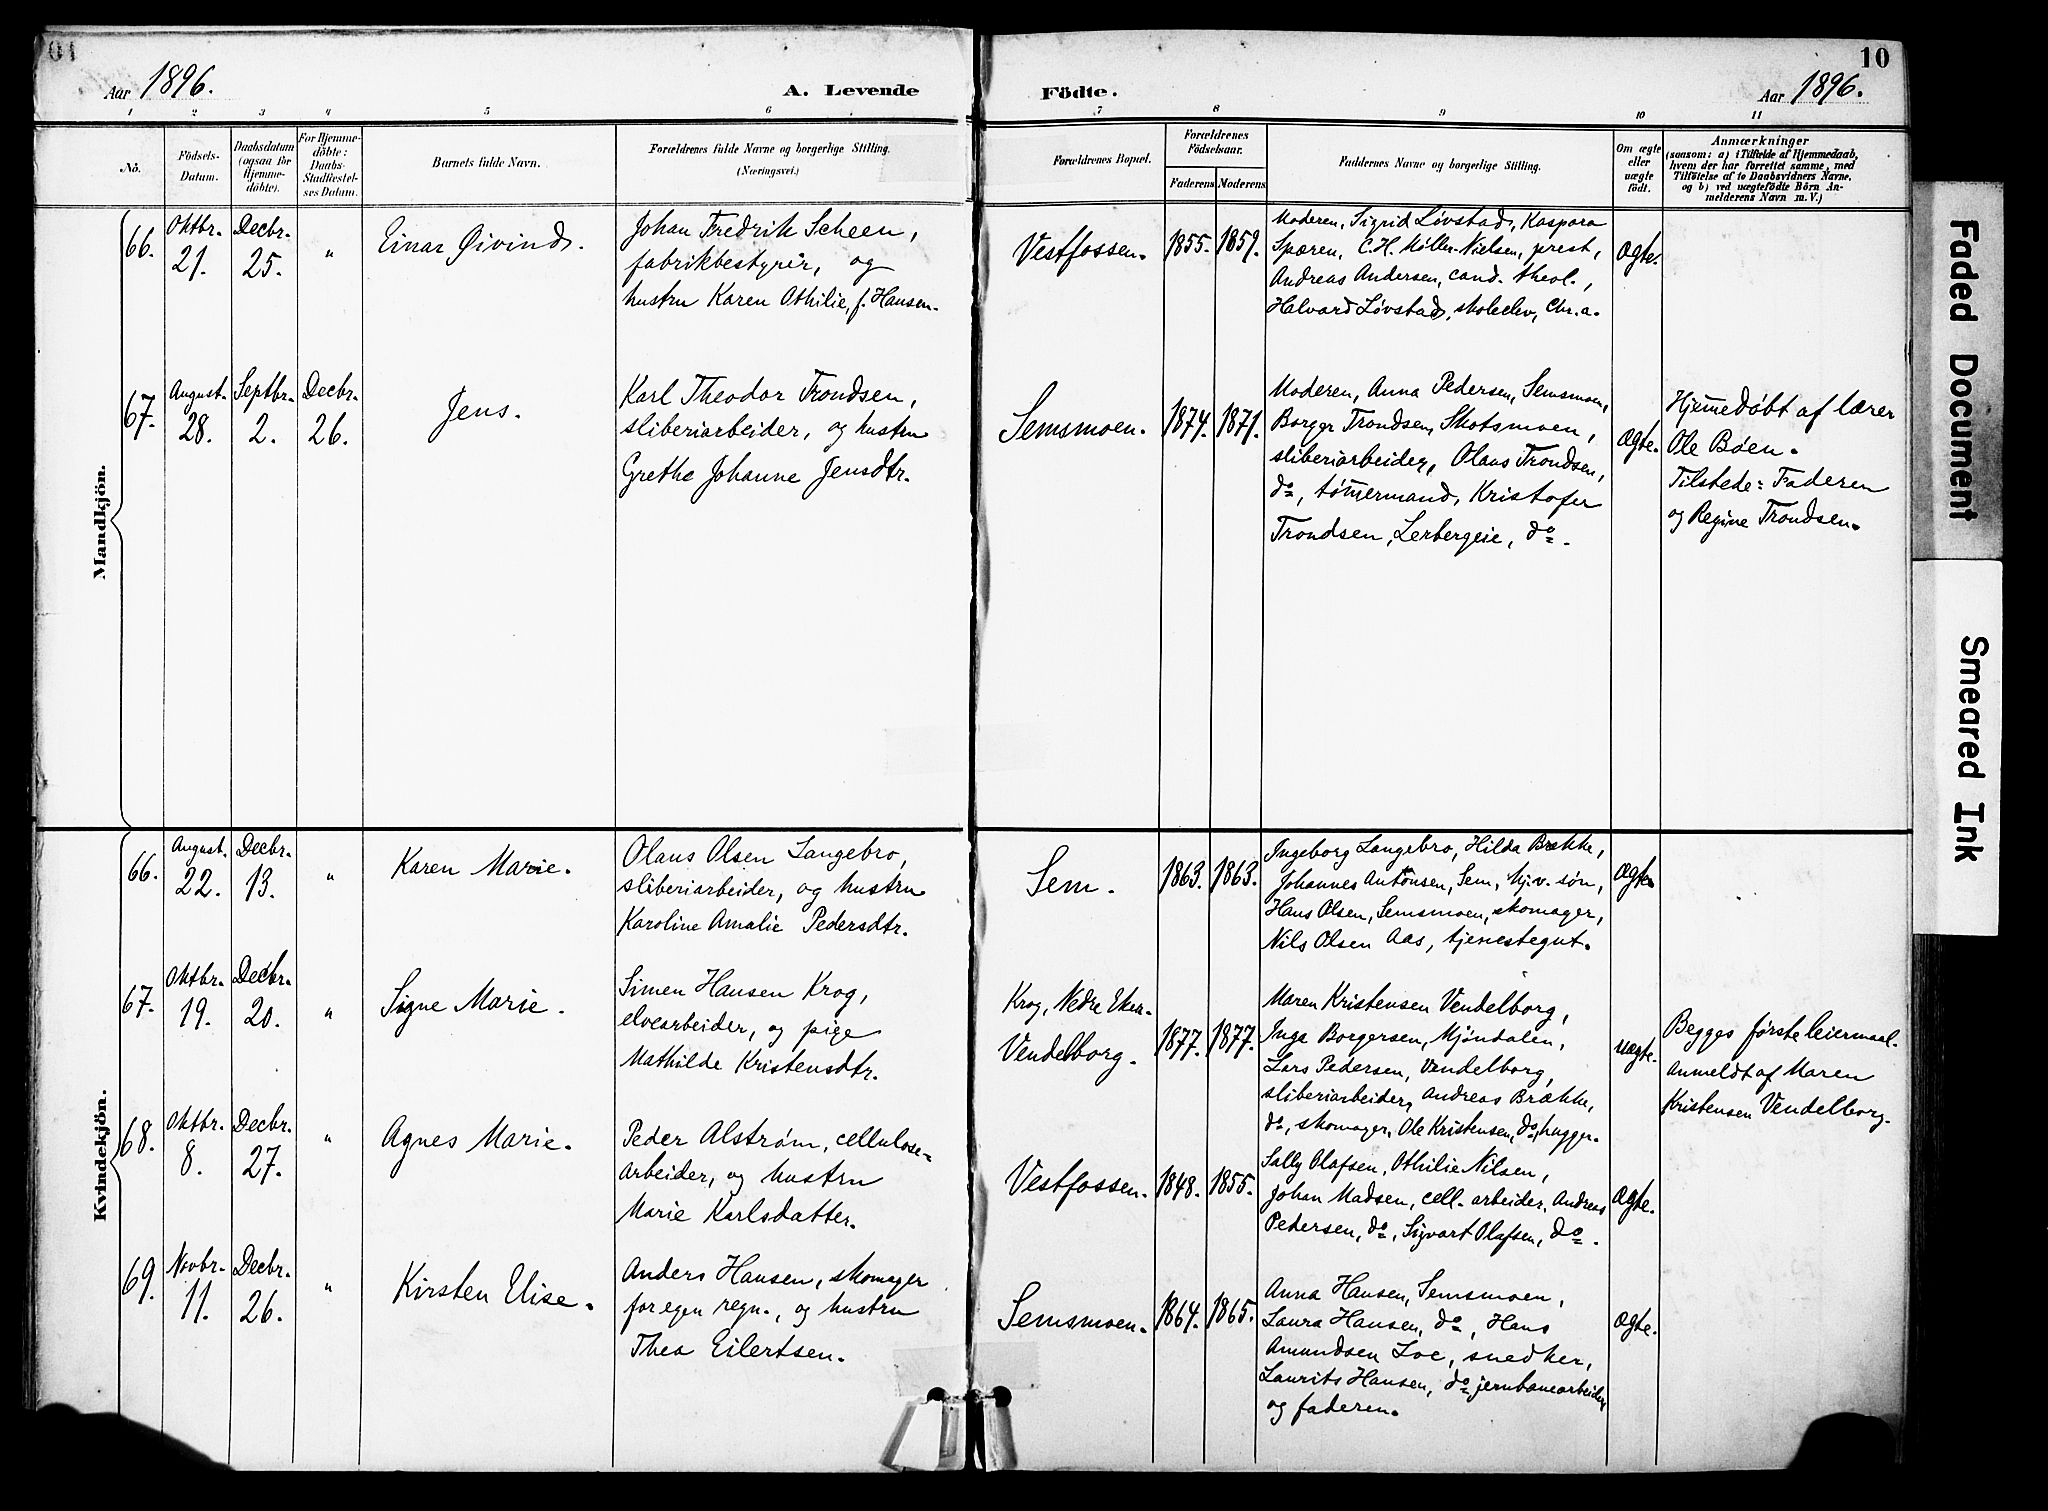 01
10
Aar 1896.
A. Levende
Födte.
Aar 1896.
1 2 3 4 5 6 7 8 9 10 11
No.
Födsels-
Datum.
Daabsdatum
(ogsaa for
Hjemme-
døbte).
For Hjemme-
døbte:
Daabs-
Stadfæstel-
ses Datum.
Barnets fulde Navn.
Forældrenes fulde Navne og borgerlige Stilling.
(Næringsvei.)
Forældrenes Bopæl.
Forældrenes
Födselsaar.
Faderens Moderens
Faddernes Navne og borgerlige Stilling.
Om ægte
eller
uægte
født.
Anmærkninger
(saasom: a) i Tilfælde af Hjemmedaab,
hvem der har forrettet samme, med
Tilføielse af to Daabsvidners Navne,
og b) ved uægtefödte Börn An-
melderens Navn m. V.)
Mandkjön.
66.
Oktbr.
21.
Decbr.
25.
"
Einar Øivind.
Johan Fredrik Scheen,
fabrikbestyrer, og
hustru Karen Othilie, f. Hansen.
Vestfossen.
1855. 1859.
Moderen, Sigrid Løvstad, Kaspara
Sparen, C.H. Møller-Nielsen, prest,
Andreas Andersen, cand. theol.,
Halvard Løvstad, skoleelev, Chr.a.
Ægte.
67.
August.
28.
Septbr.
2.
Decbr.
26.
Jens.
Karl Theodor Trondsen,
sliberiarbeider, og hustru
Grethe Johanne Jensdtr.
Semsmoen.
1874. 1871.
Moderen, Anna Pedersen, Semsmoen,
Borger Trondsen, Skotsmoen,
sliberiarbeider, Olaus Trondsen,
do, tømmermand, Kristofer
Trondsen, Lerbergeie, do.
Ægte.
Hjemmedøbt af lærer
Ole Bøen.
Tilstede: Faderen
og Regine Trondsen.
Kvindekjön.
66.
August.
22.
Decbr.
13.
"
Karen Marie.
Olaus Olsen Langebro,
sliberiarbeider, og hustru
Karoline Amalie Pedersdtr.
Sem.
1863. 1863.
Ingeborg Langebro, Hilda Brekke,
Johannes Antonsen, Sem, hj.v. søn,
Hans Olsen, Semsmoen, skomager,
Nils Olsen Aas, tjenestegut.
Ægte
67.
Oktbr.
19.
Decbr.
20.
"
Signe Marie.
Simen Hansen Krog,
elvearbeider, og pige
Mathilde Kristensdtr.
Krog, Nedre Eker.
Vendelborg.
1877. 1877.
Maren Kristensen Vendelborg,
Inga Borgersen, Mjøndalen,
Lars Pedersen, Vendelborg,
sliberiarbeider, Andreas Brække,
do, skomager, Ole Kristensen, do, hugger.
uægte.
Begges første leiermaal.
Anmeldt af Maren
Kristensen Vendelborg.
68.
Oktbr.
8.
Decbr.
27.
"
Agnes Marie.
Peder Alstrøm, cellulose-
arbeider, og hustru
Marie Karlsdatter.
Vestfossen.
1848. 1855.
Sally Olafsen, Othilie Nilsen,
Johan Madsen, cell. arbeider, Andreas
Petersen, do, Sigvart Olafsen, do.
Ægte.
69.
Novbr.
11.
Decbr.
26.
"
Kirsten Elise.
Anders Hansen, skomager
for egen regn., og hustru
Thea Eilertsen.
Semsmoen.
1864. 1865.
Anna Hansen, Semsmoen,
Laura Hansen, do, Hans
Amundsen Loe, snedker,
Laurits Hansen, do, jernbanearbeider
og faderen.
Ægte.
Faded Document
Smeared Ink